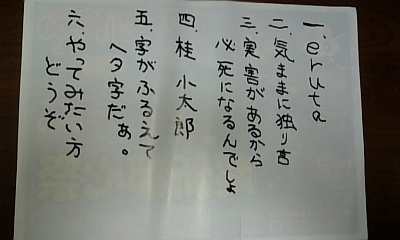 一.eruta
二.気ままに独り言
三.実害があるから
必死になるんでしょ
四.桂 小太郎
五.字がふるえて
ヘタ字だぁ。
六.やってみたい方
どうぞ